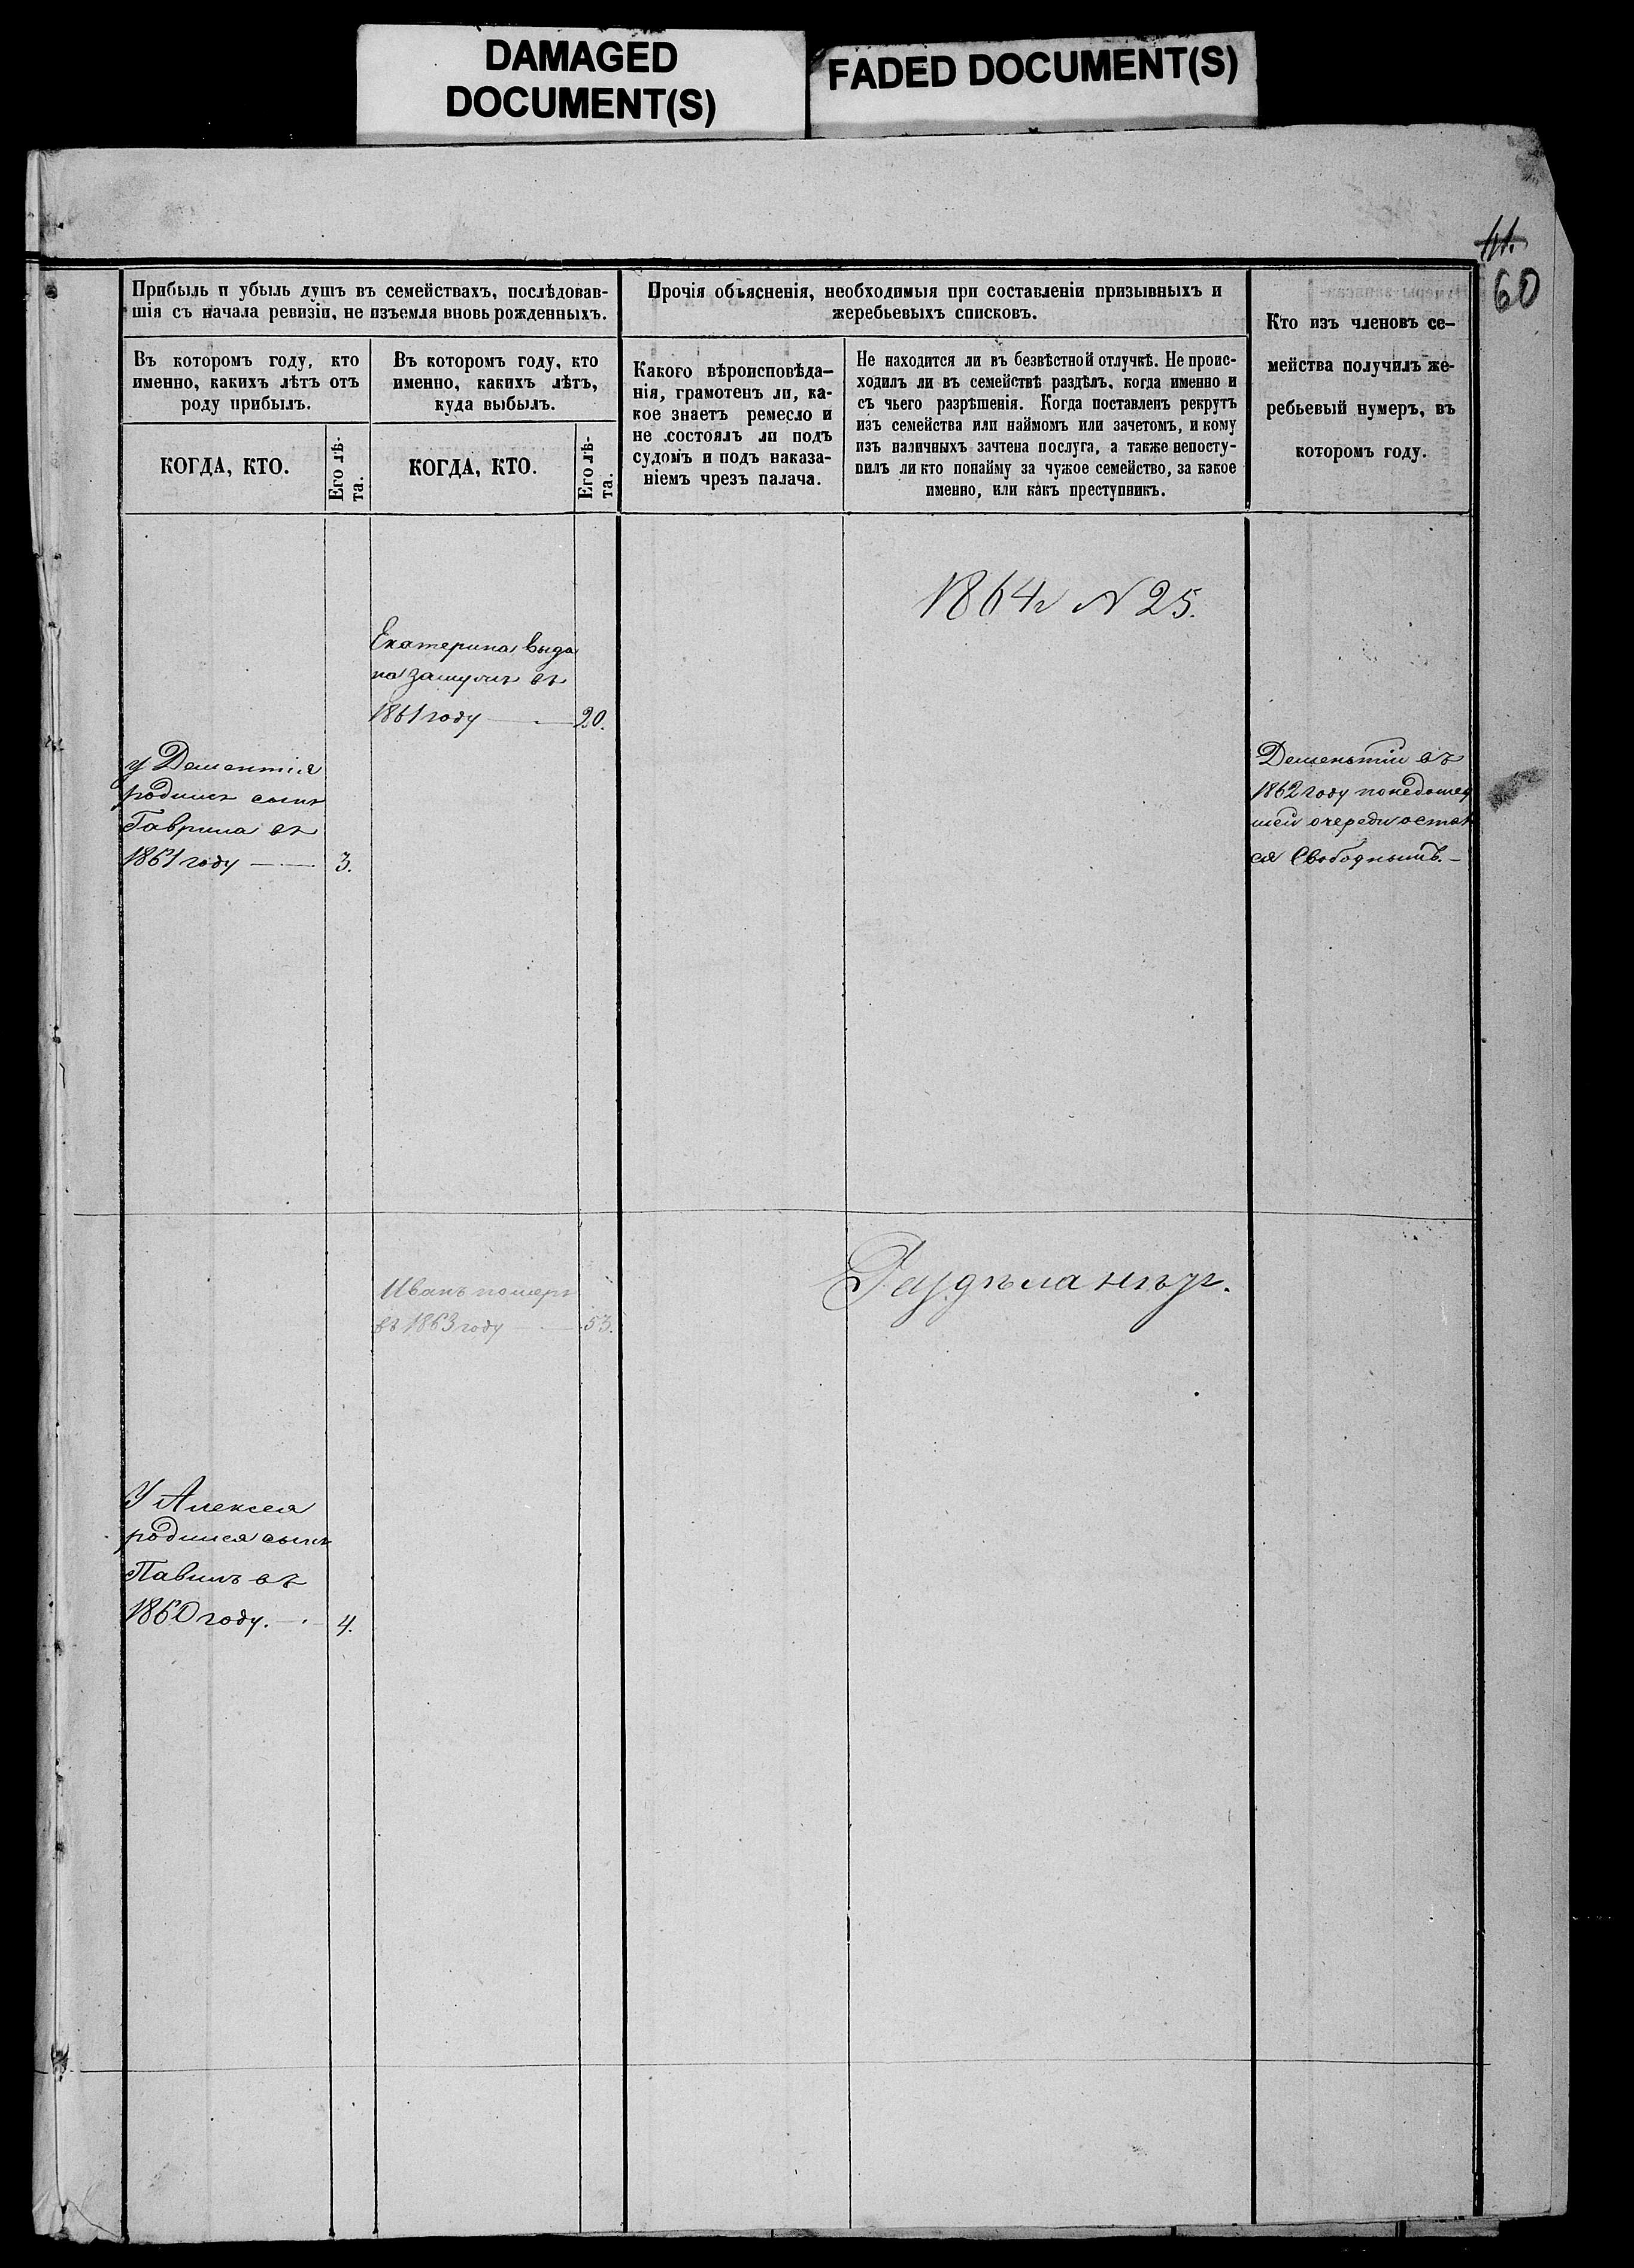 DAMAGED
DOCUMENT(S)
FADED DOCUMENT(S)
41.
60
Прибыль и убыль душъ въ семействахъ, послѣдовав-
шія съ начала ревизіи, не изъемля вновь рожденныхъ.
Въ которомъ году, кто
именно, какихъ лѣтъ отъ
роду прибылъ.
КОГДА, КТО.
Его лѣ-
та.
Въ которомъ году, кто
именно, какихъ лѣтъ,
куда выбылъ.
КОГДА, КТО.
Его лѣ-
та.
Прочія объясненія, необходимыя при составленіи призывныхъ и
жеребьевыхъ списковъ.
Какого вѣроисповѣда-
нія, грамотенъ ли, ка-
кое знаетъ ремесло и
не состоялъ ли подъ
судомъ и подъ наказа-
ніемъ чрезъ палача.
Не находится ли въ безвѣстной отлучкѣ. Не проис-
ходилъ ли въ семействѣ раздѣлъ, когда именно и
съ чьего разрѣшенія. Когда поставленъ рекрутъ
изъ семейства или наймомъ или зачетомъ, и кому
изъ наличныхъ зачтена послуга, а также непосту-
пилъ ли кто понайму за чужое семейство, за какое
именно, или какъ преступникъ.
Кто изъ членовъ се-
мейства получилъ же-
ребьевый нумеръ, въ
которомъ году.
1864г N 25.
Екатерина выда
на замужъ въ
1861 году — 20.
у Дементія
родился сынъ
Гаврила въ
1861 году — 3.
Деменьтій въ
1862 году понедошед
шей очереди остал
ся Свободнымъ. –
Иванъ померъ
въ 1863 году — 53.
Раздѣла нѣтъ.
У Алексея
родился сынъ
Павилъ въ
1860 году. — 4.